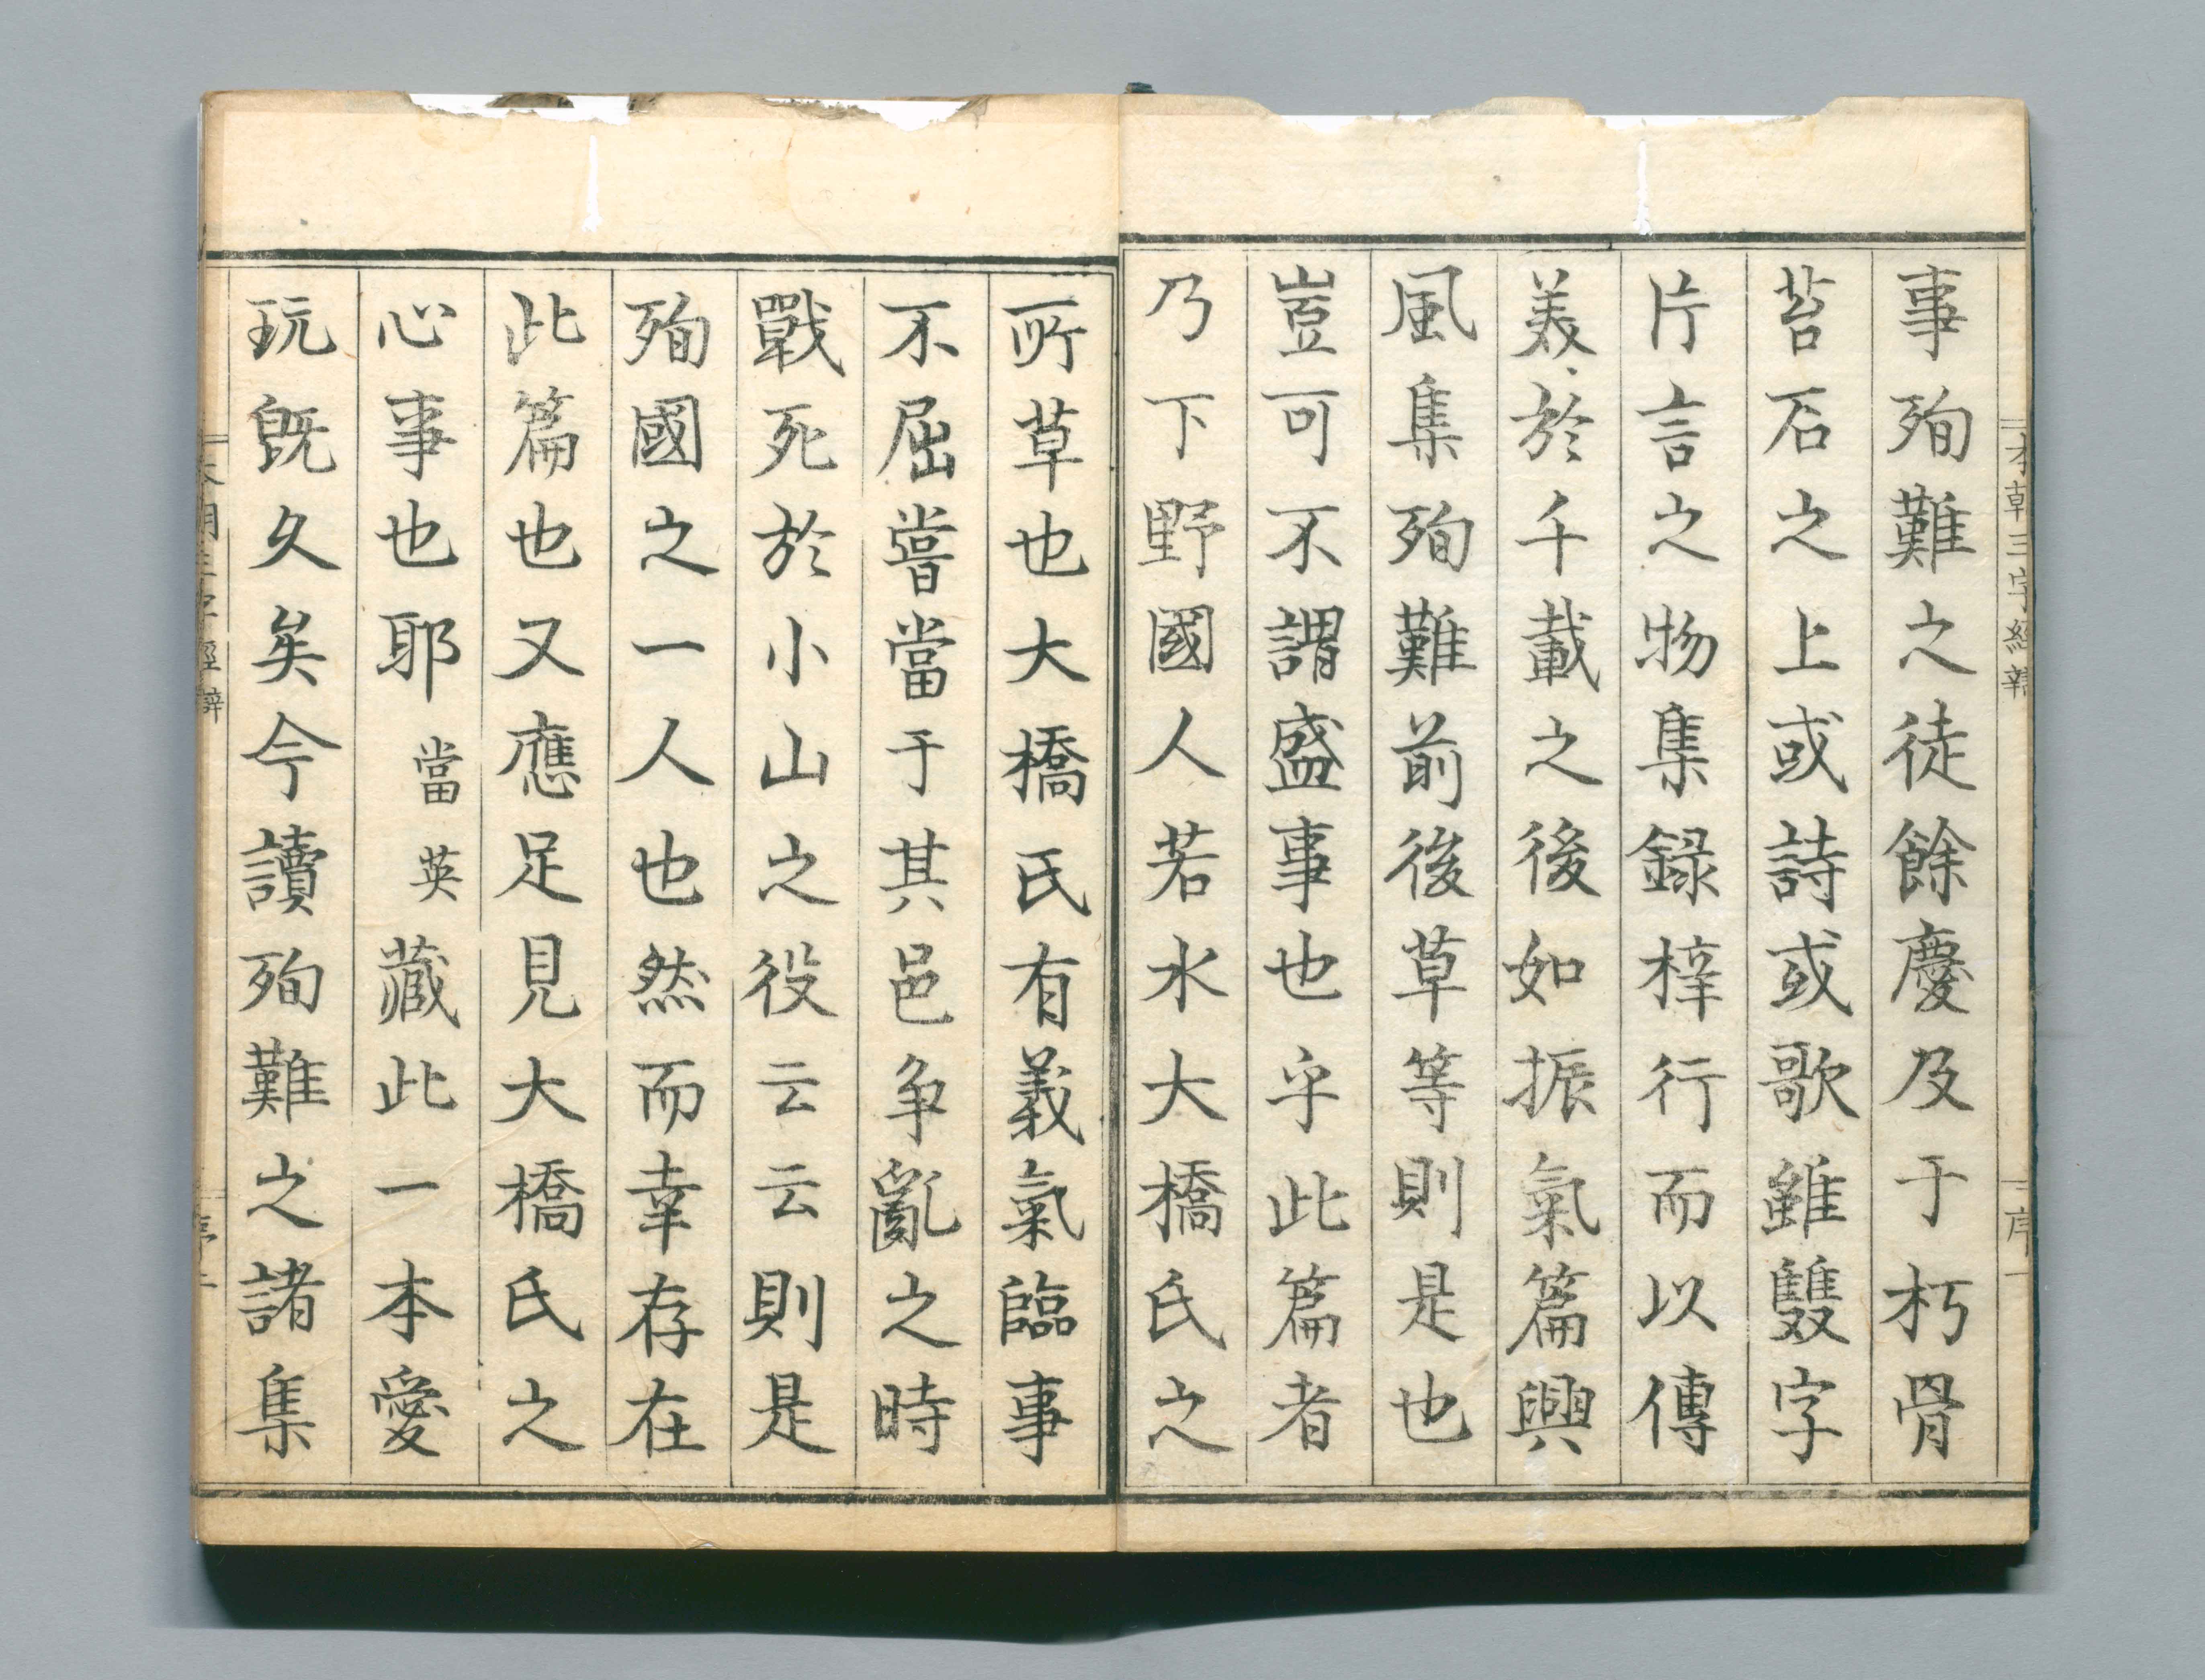 本朝三字經辨
序一
事殉難之徒餘慶及于朽骨
苔石之上或詩或歌雖雙字
片言之物集録梓行而以傳
美於千載之後如振氣篇興
風集殉難前後草等則是也
豈可不謂盛事也乎此篇者
乃下野國人若水大橋氏之
所草也大橋氏有義氣臨事
不屈嘗當于其邑争亂之時
戰死於小山之役云云則是
殉國之一人也然而幸存在
此篇也又應足見大橋氏之
心事也耶當英藏此一本愛
玩既久矣今讀殉難之諸集
本朝三字經辨
序二